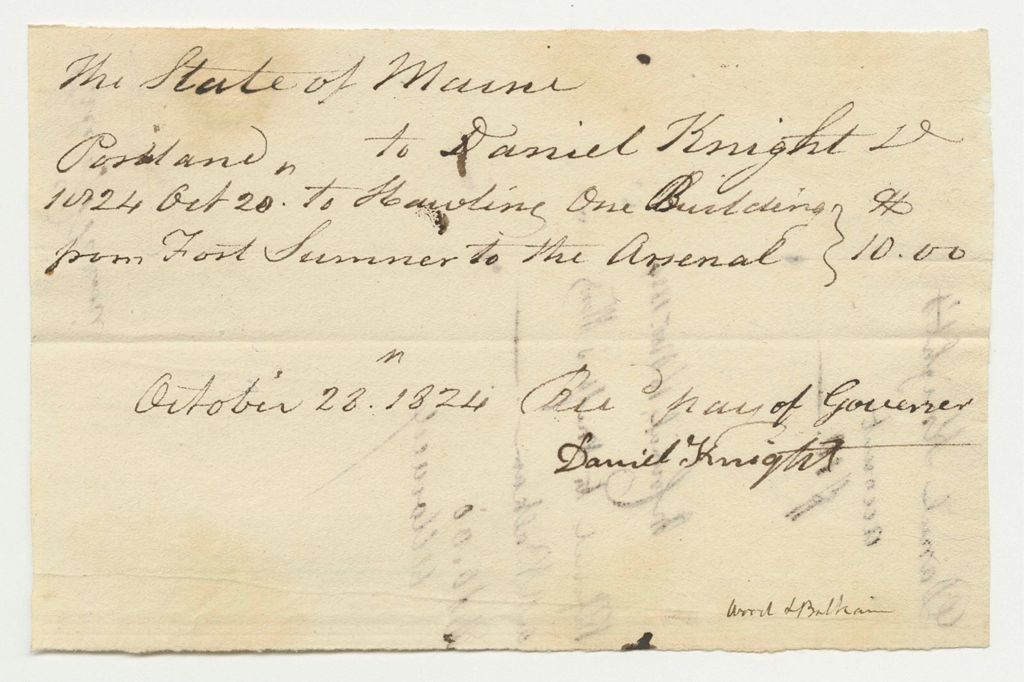 The State of Maine
Portland to Daniel Knight Dr
1824 Oct 20. to Hauling One Building $
from Fort Sumner to the Arsenal } 10.00
October 28. 1824 Rec pay of Governer
Daniel Knight